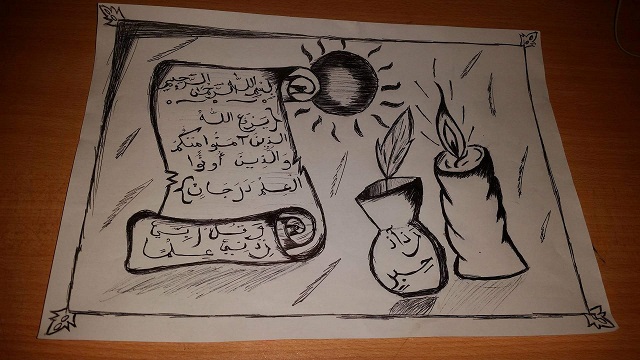 بسم الله الرحمن الرحيم
{يرفع الله
الذين آمنوا منكم
والذين أوتوا
العلم درجات}
وقل ربي
زدني علما
حبر